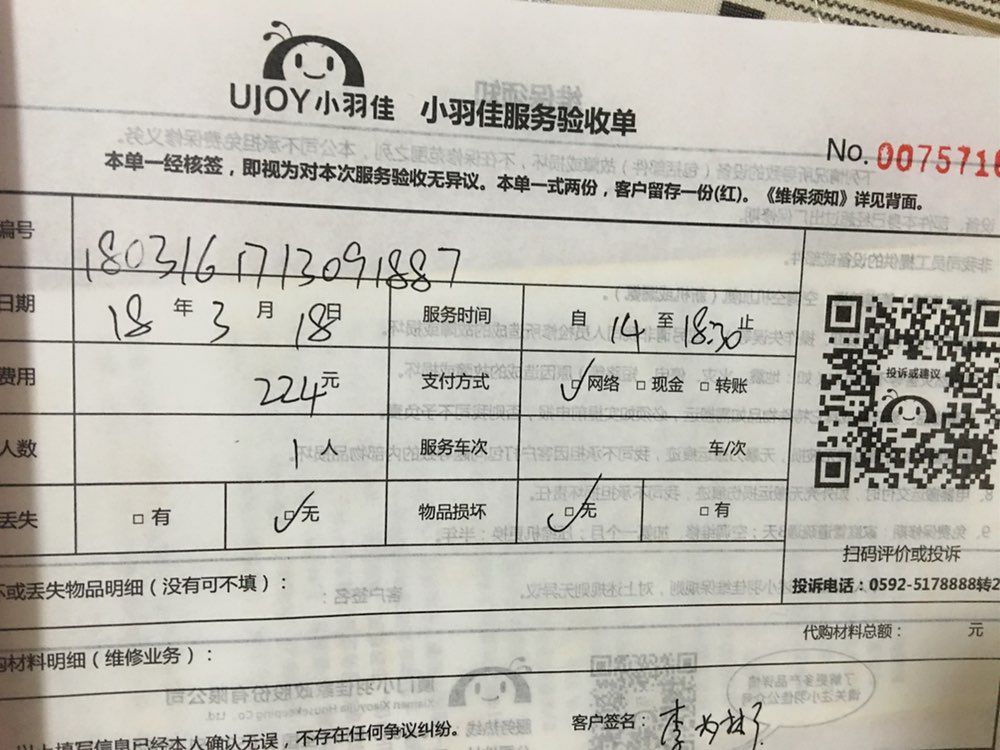 UJOY小羽佳 小羽佳服务验收单
No. 0075716
本单一经核签，即视为对本次服务验收无异议。本单一式两份，客户留存一份(红)。《维保须知》详见背面。
编号 1803161713091887
日期 18 年 3 月 18 日 服务时间 自 14 至 18:30 止
费用 224 元 支付方式 网络 现金 转账
人数 1 人 服务车次 车/次
丢失 有 无 物品损坏 无 有
投诉或建议
扫码评价或投诉
投诉电话：0592-5178888转2
坏或丢失物品明细（没有可不填）：
代购材料总额： 元
购材料明细（维修业务）：
以上填写信息已经本人确认无误，不存在任何争议纠纷。
客户签名：李